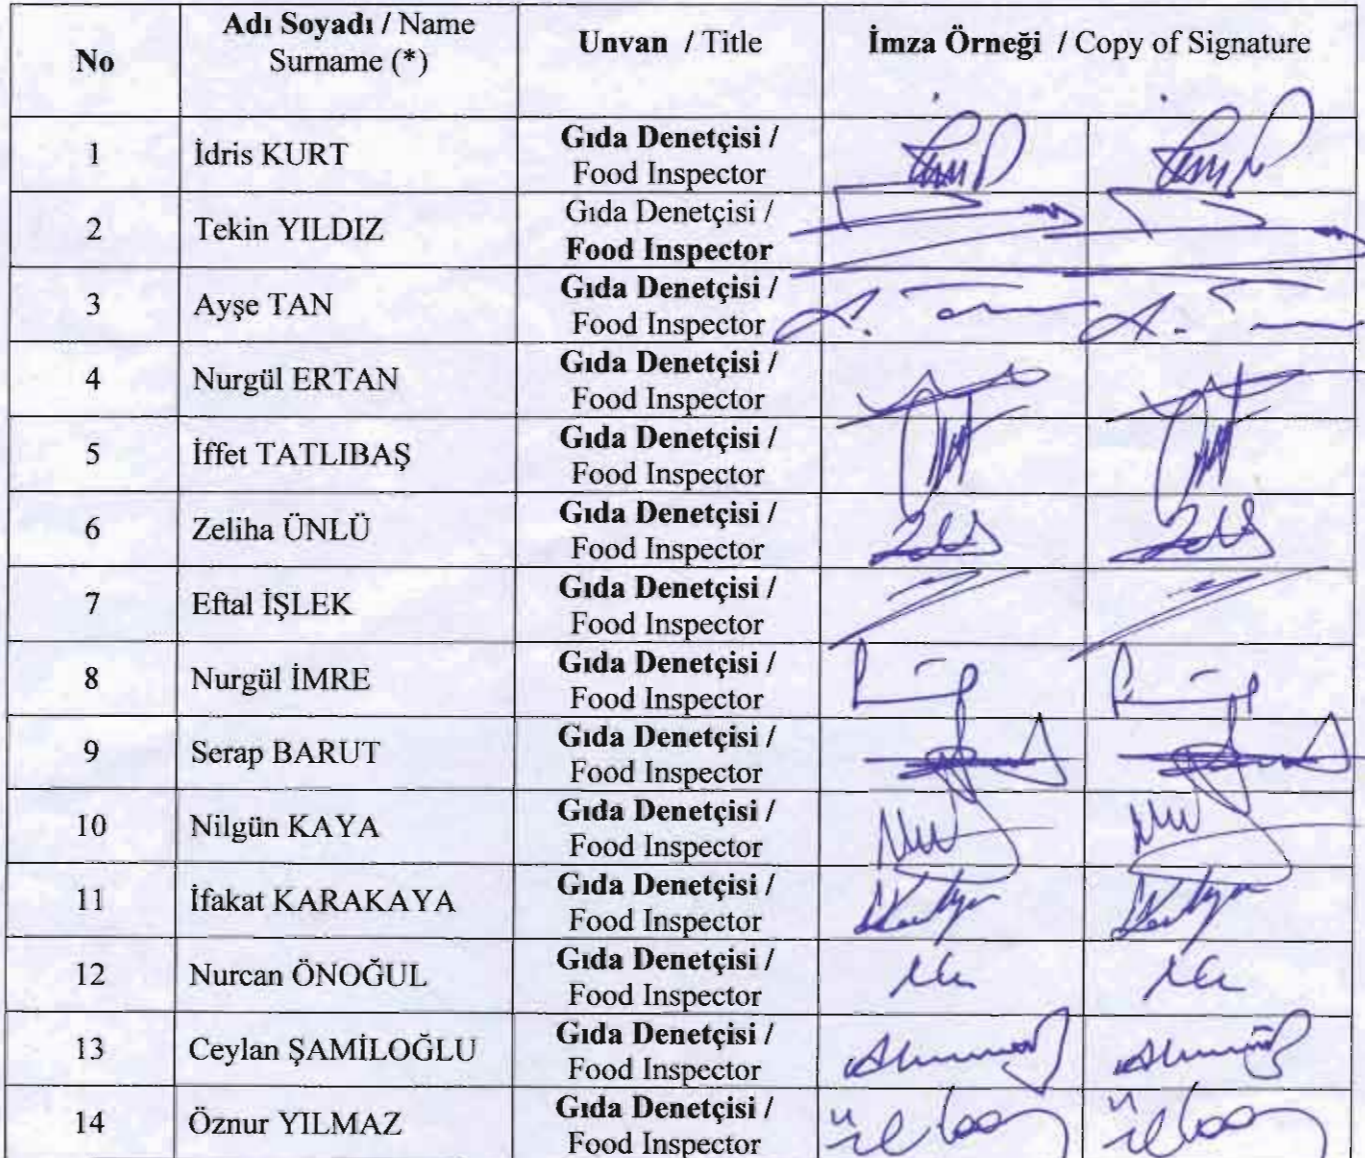 No
Adı Soyadı / Name
Surname (*)
Unvan / Title
İmza Örneği / Copy of Signature
1
İdris KURT
Gıda Denetçisi /
Food Inspector
2
Tekin YILDIZ
Gıda Denetçisi /
Food Inspector
3
Ayşe TAN
Gıda Denetçisi /
Food Inspector
4
Nurgül ERTAN
Gıda Denetçisi /
Food Inspector
5
İffet TATLIBAŞ
Gıda Denetçisi /
Food Inspector
6
Zeliha ÜNLÜ
Gıda Denetçisi /
Food Inspector
7
Eftal İŞLEK
Gıda Denetçisi /
Food Inspector
8
Nurgül İMRE
Gıda Denetçisi /
Food Inspector
9
Serap BARUT
Gıda Denetçisi /
Food Inspector
10
Nilgün KAYA
Gıda Denetçisi /
Food Inspector
11
İfakat KARAKAYA
Gıda Denetçisi /
Food Inspector
12
Nurcan ÖNOĞUL
Gıda Denetçisi /
Food Inspector
13
Ceylan ŞAMİLOĞLU
Gıda Denetçisi /
Food Inspector
14
Öznur YILMAZ
Gıda Denetçisi /
Food Inspector